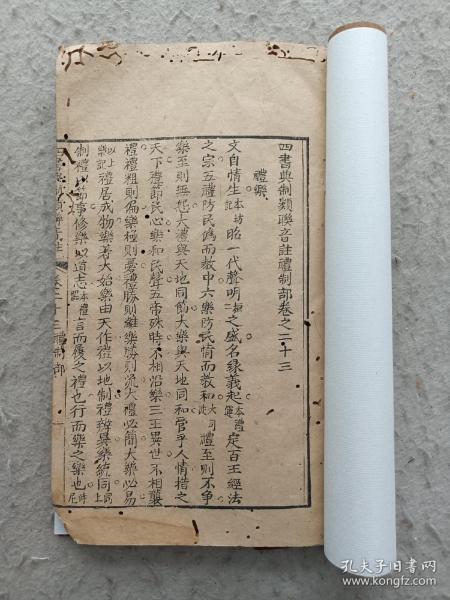 四書典制類聯音註禮制部卷之二十三
禮樂
文自情生本坊記昭一代聲明二桓之盛名緣義起本禮運定百王經法
之宗五禮防民僞而敎中六樂防民情而敎和大司徒禮至則不爭
樂至則無怨大禮與天地同節大樂與天地同和管乎人情措之
天下禮節民心樂和民聲五帝殊時不相沿樂三王異世不相襲
禮禮粗則偏樂極則憂禮勝則離樂勝則流大禮必簡大樂必易
以上樂記禮居成物樂著大始樂由天作禮以地制禮辨異樂統同上同
制禮以節事修樂以道志本禮器言而履之禮也行而樂之樂也
卷二十三禮制部
孔夫子旧书网
www.kongfz.com